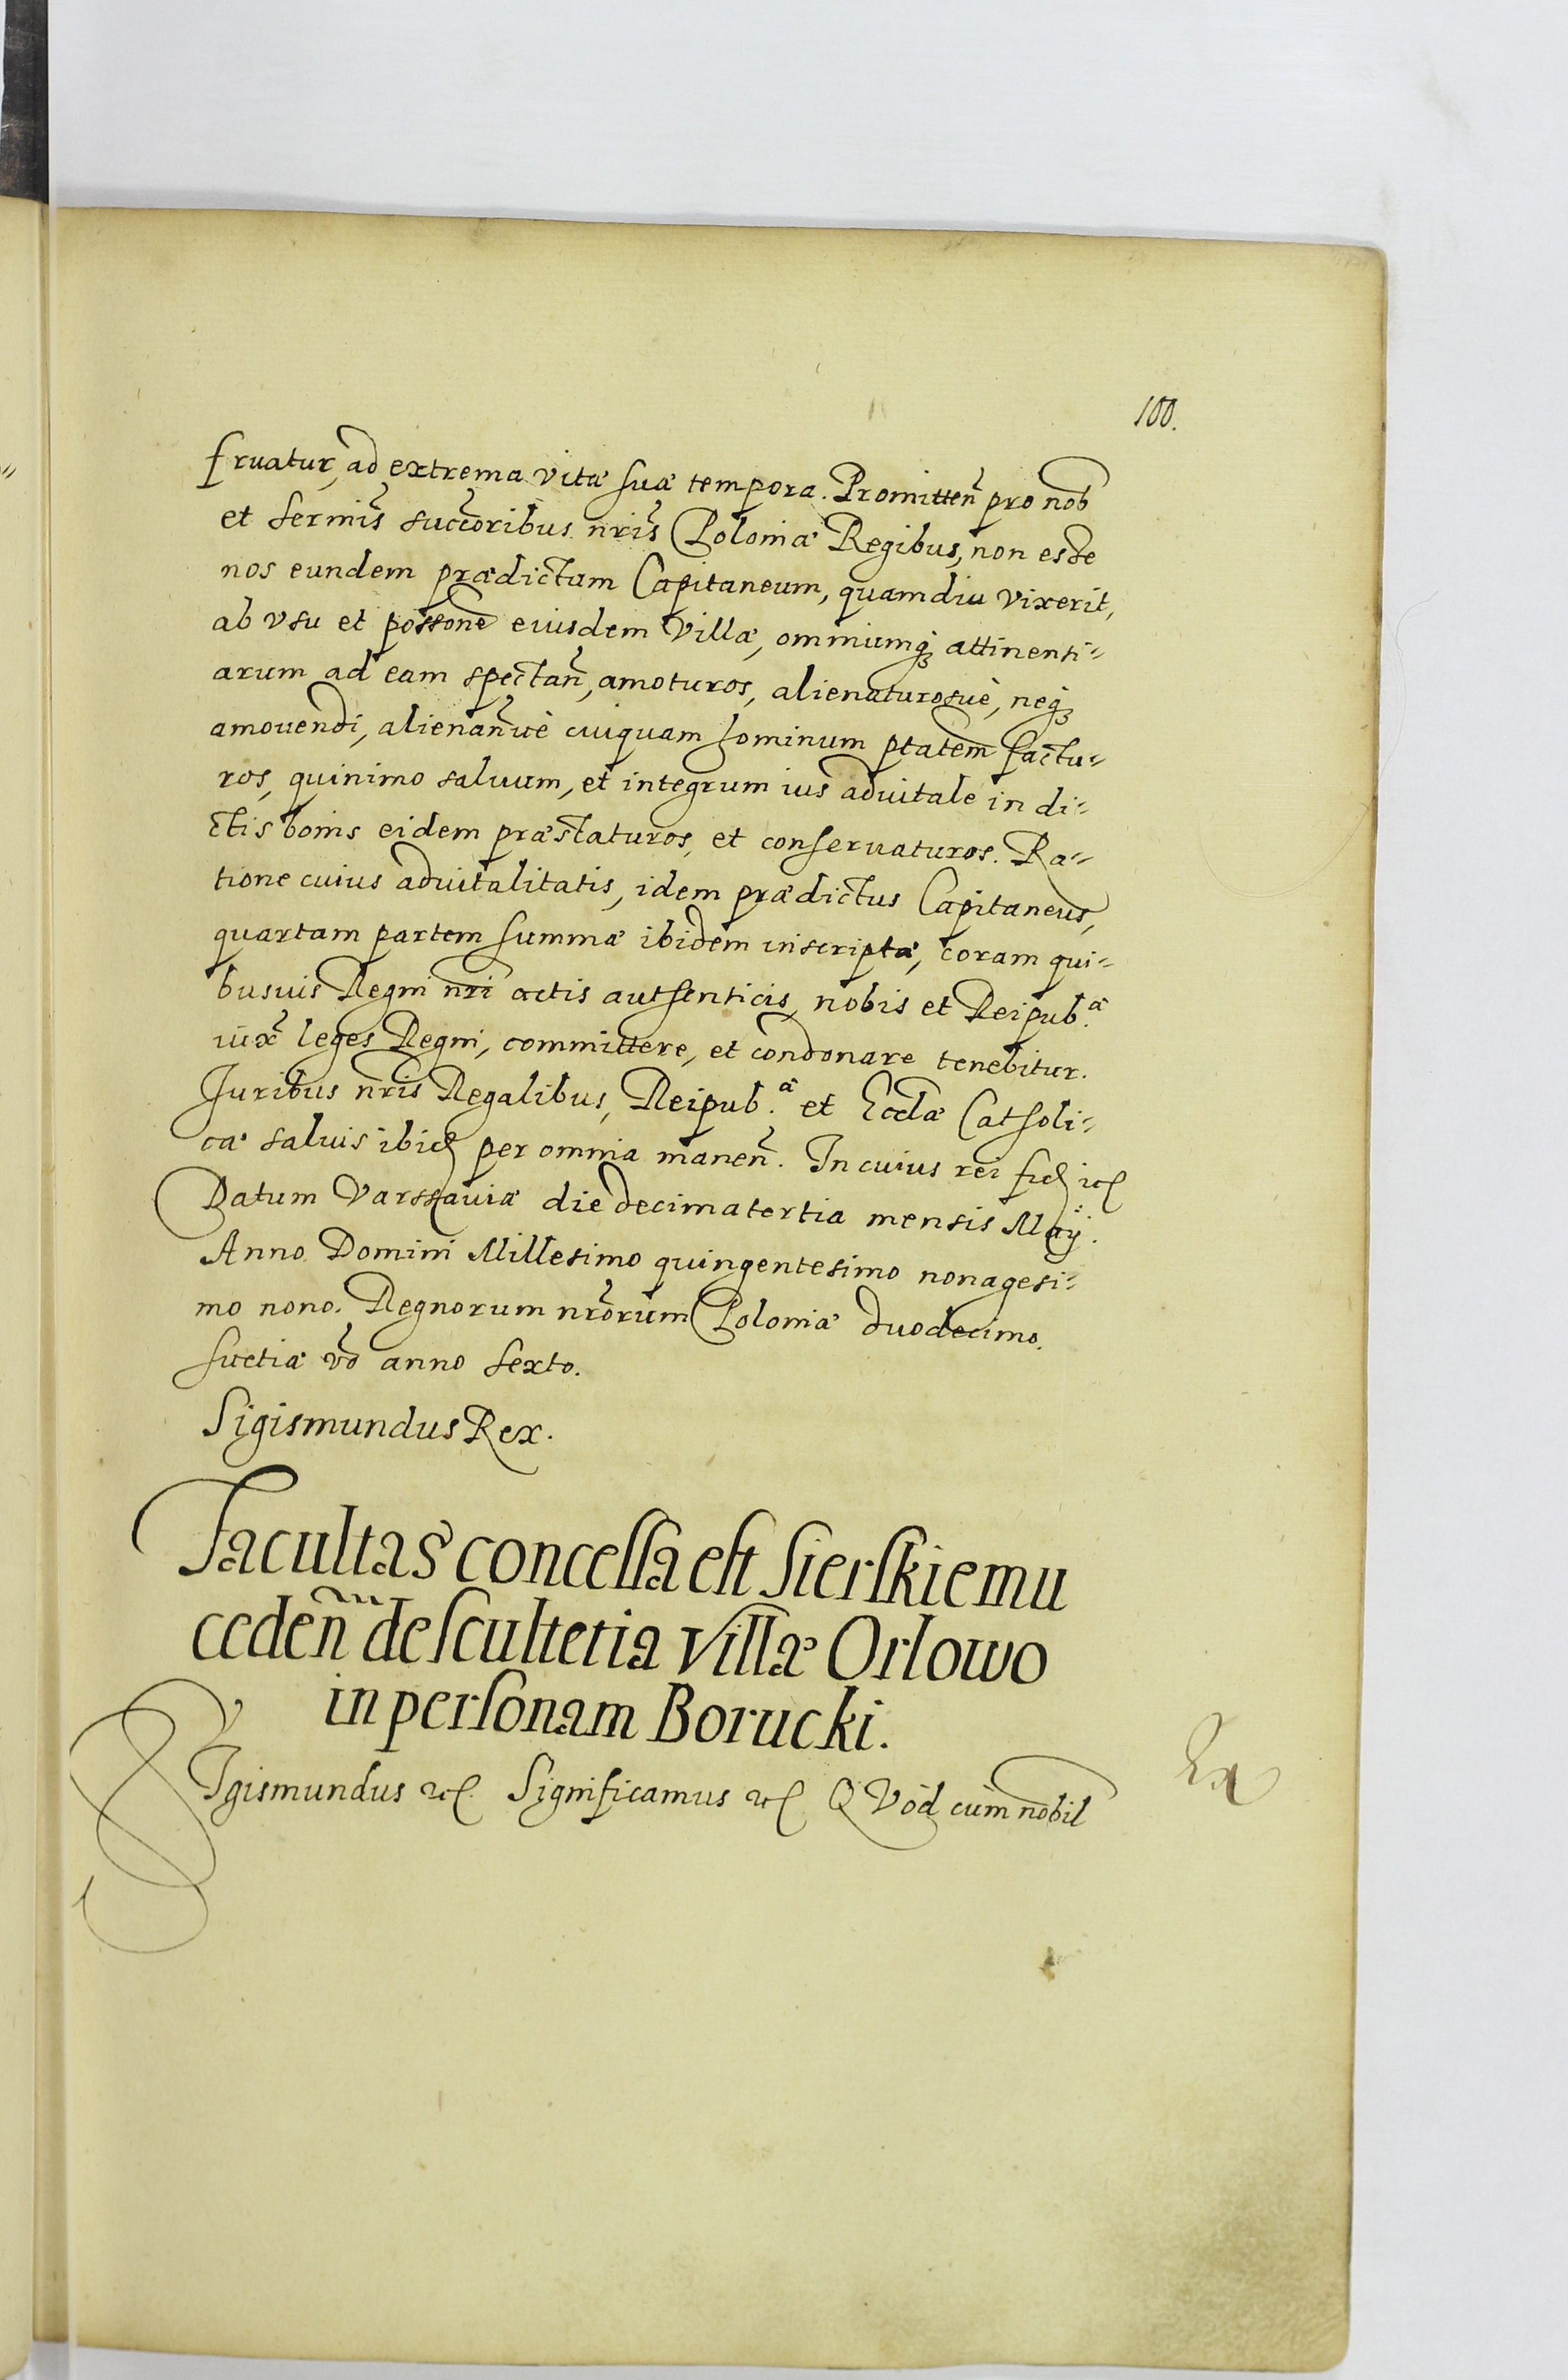 100.
fruatur, ad extrema vitæ suæ tempora. Promitten̄ pro nob
et sermis̄ succ̄oribus nr̄is Poloniæ Regibus, non esse
nos eundem prædictam Capitaneum, quamdiu vixerit,
ab vsu et poss̄one eiusdem Villæ, omniumq; attinenti⸗
arum ad eam spectan̄, amoturos, alienaturosuè, neq;
amouendi, alienan̄uè cuiquam hominum ptatem̄ factu⸗
ros, quinimo saluum, et integrum ius aduitale in di⸗
ctis bonis eidem præstaturos, et conseruaturos. Ra⸗
tione cuius aduitalitatis, idem prædictus Capitaneus,
quartam partem summæ ibidem inscriptæ, coram qui⸗
busuis Regni nr̄i actis authenticis, nobis et Reipub.ᵃ
iux̄ leges Regni, committere, et condonare tenebitur.
Juribus nr̄is Regalibus, Reipub.ᵃ et Eccl̄æ Catholi⸗
cæ saluis ibid per omnia manen̄. In cuius rei fid etc
Datum Varssauiæ die decimatertia mensis Maÿ.
Anno Domini Millesimo quingentesimo nonagesi⸗
mo nono. Regnorum nr̄orum Poloniæ duodecimo.
suetiæ v̄o anno sexto.
Sigismundus Rex.
Facultas concessa est Sierskiemu
ceden̄ de scultetia villæ Orlowo
in personam Borucki.
SIgismundus etc Significamus etc QVód cùm nobil
Ex